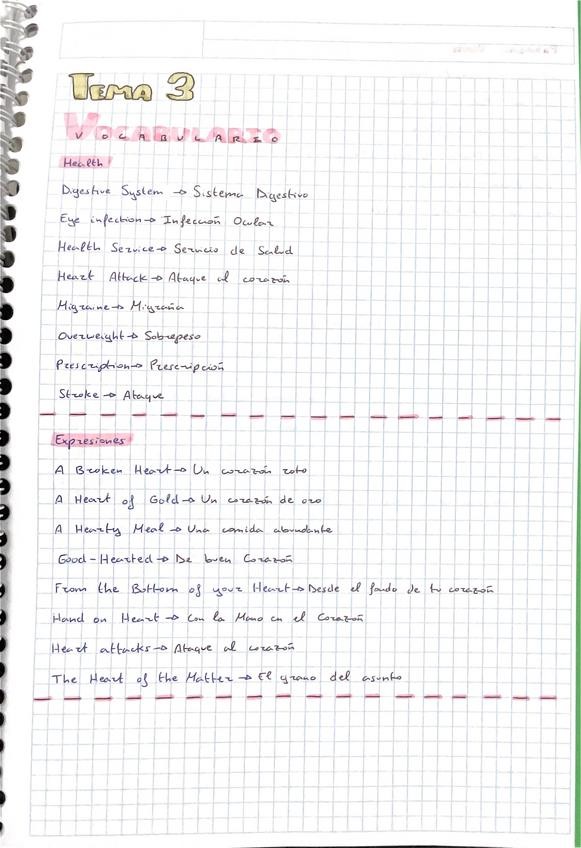 TEMA 3
VOCABULARIO
Health
Digestive System → Sistema Digestivo
Eye infection → Infección Ocular
Health Service → Servicio de Salud
Heart Attack → Ataque al corazón
Migraine → Migraña
Overweight → Sobrepeso
Prescription → Prescripción
Stroke → Ataque
Expresiones
A Broken Heart → Un corazón roto
A Heart of Gold → Un corazón de oro
A Hearty Meal → Una comida abundante
Good-Hearted → De buen Corazón
From the Bottom of your Heart → Desde el fondo de tu corazón
Hand on Heart → Con la Mano en el Corazón
Heart attacks → Ataque al corazón
The Heart of the Matter → El grano del asunto